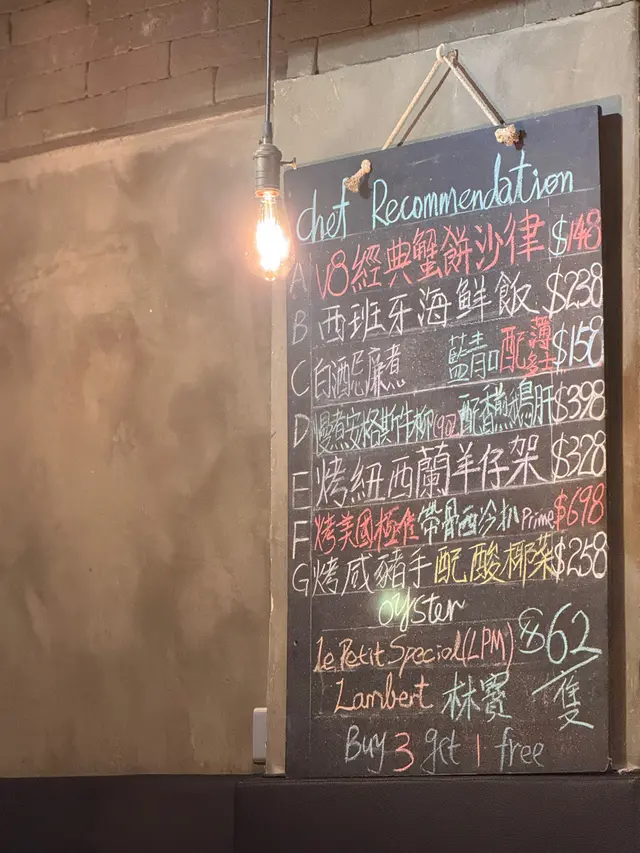 chef Recommendation
A V8經典蟹餅沙律 $148
B 西班牙海鮮飯 $238
C 白酒忌廉煮 藍青口配薄多士 $158
D 慢煮安格斯牛柳(9oz)配香煎鵝肝 $398
E 烤紐西蘭羊仔架 $328
F 烤美國極佳帶骨西冷扒Prime $698
G 烤咸豬手配酸椰菜 $258
oyster
Le Petit Special(LPM) $62/隻
Lambert 林寶
Buy 3 get 1 free